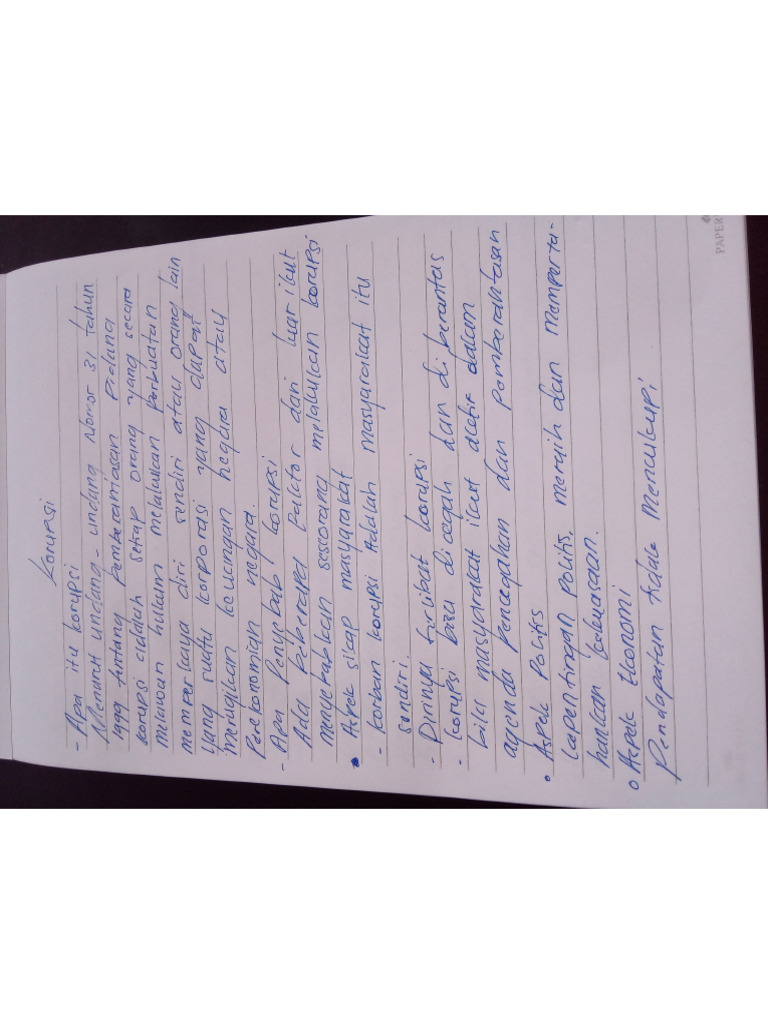 Korupsi
- Apa itu korupsi
Menurut undang - undang Nomor 31 tahun
1999 tentang Pemberantasan Pidana
korupsi adalah setiap orang yang secara
melawan hukum melakukan perbuatan
memperkaya diri sendiri atau orang lain
yang suatu korporasi yang dapat
merugikan keuangan negara atau
Perekonomian negara.
- Apa Penyebab korupsi
Ada beberapa Faktor dari luar ikut
menyebabkan seseorang melakukan korupsi
• Aspek sikap masyarakat
- korban korupsi Adalah masyarakat itu
sendiri.
- Dirinya terlibat korupsi
- korupsi bisa dicegah dan di berantas
bila masyarakat ikut aktif dalam
agenda pencegahan dan Pemberantasan
• Aspek Politis
kapentingan politis, meraih dan memperta-
hankan kekuasaan.
o Aspek Ekonomi
Pendapatan tidak Mencukupi
PAPER